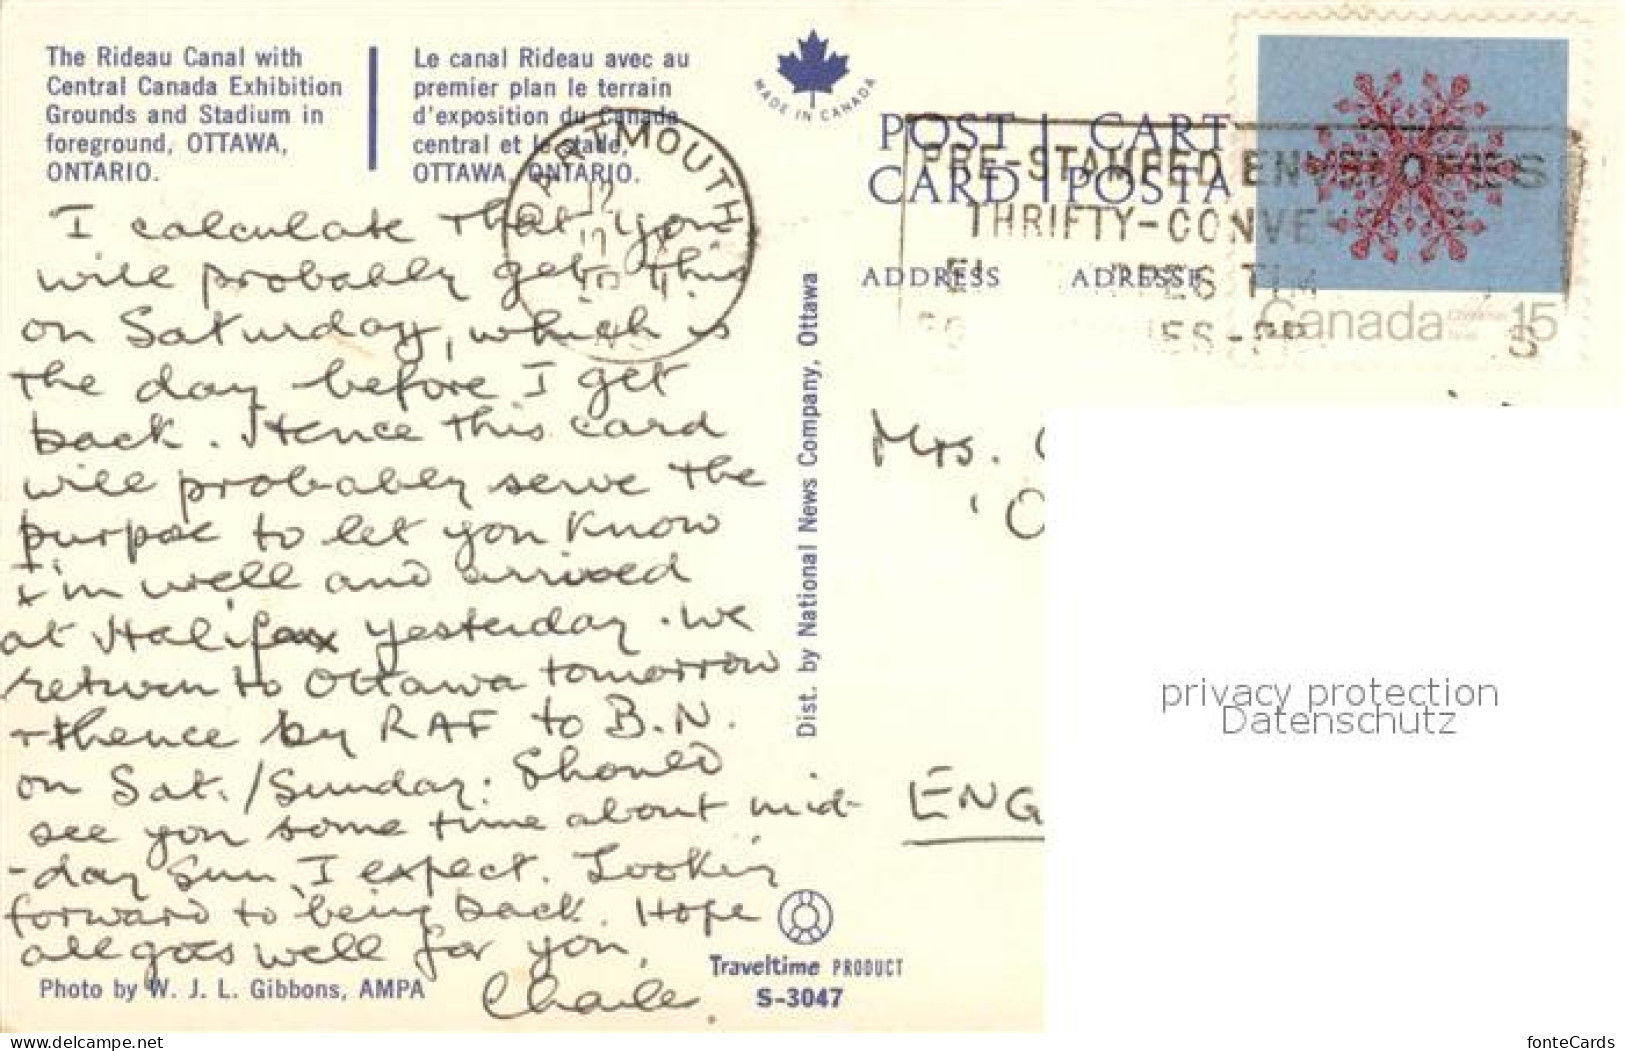 The Rideau Canal with
Central Canada Exhibition
Grounds and Stadium in
foreground, OTTAWA,
ONTARIO.
Le canal Rideau avec au
premier plan le terrain
d'exposition du Canada
central et le stade,
OTTAWA, ONTARIO.
MADE IN CANADA
POST | CARTE
CARD | POSTA
ADDRESS ADRESSE
DARTMOUTH
12
PRE-STAMPED ENVELOPES
THRIFTY-CONVE
Canada 15
I calculate that you
will probably get this
on Saturday, which is
the day before I get
back. Hence this card
will probably serve the
purpose to let you know
I'm well and arrived
at Halifax yesterday. We
return to Ottawa tomorrow
+ thence by RAF to B.N.
on Sat./Sunday. Should
see you some time about mid-
-day Sun, I expect. Lookin
forward to being back. Hope
all goes well for you,
Charle.
Photo by W. J. L. Gibbons, AMPA
Dist. by National News Company, Ottawa
Traveltime PRODUCT
S-3047
Mrs.
ENG
privacy protection
Datenschutz
www.delcampe.net
fonteCards